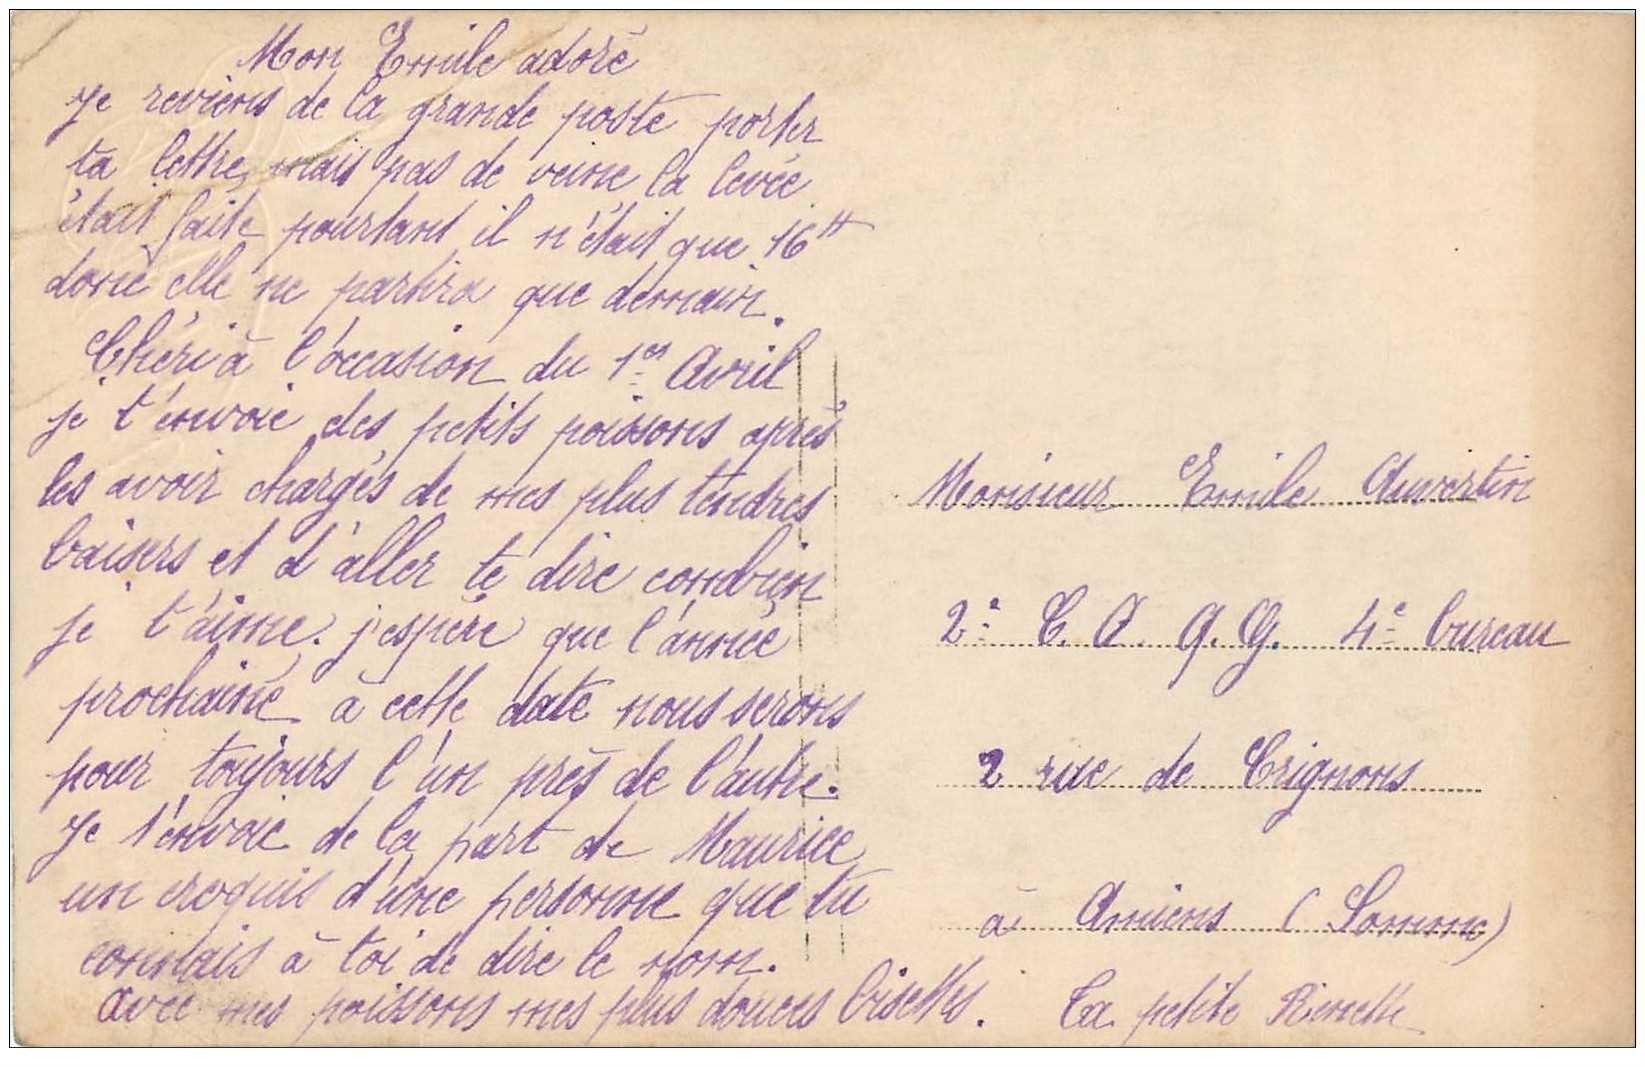 Mon Emile adoré
Je reviens de la grande poste porter
ta lettre, mais pas de veine la levée
était faite pourtant il n'était que 16 H
donc elle ne partira que demain.
Chéri à l'occasion du 1er Avril
je t'envoie des petits poissons après
les avoir chargés de mes plus tendres
baisers et d'aller te dire combien
je t'aime. j'espère que l'année
prochaine à cette date nous serons
pour toujours l'un près de l'autre.
Je t'envoie de la part de Maurice
un croquis d'une personne que tu
connais à toi de dire le nom.
avec mes poissons mes plus douces bisettes.
Ta petite Rinette
Monsieur Emile Auvertin
2e C. A. Q. G. 4e bureau
2 rue de Crignons
à Amiens (Somme)